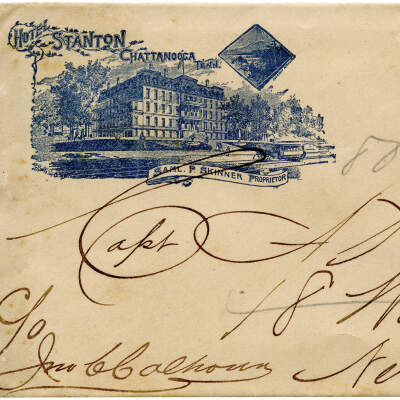 HOTEL STANTON
CHATTANOOGA
TENN.
SAML. P. SKINNER PROPRIETOR
80
Capt A
18 W
C/o
Jno C Calhoun
Ne